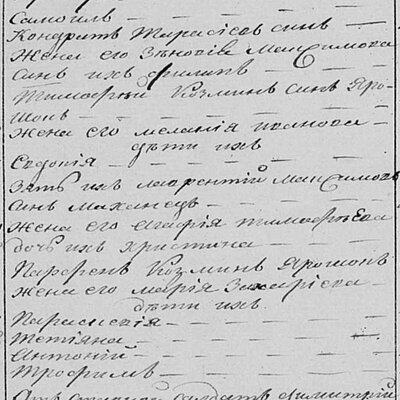 Самоилъ
Кондратъ Тарасіевъ синъ
Жена его Зѣновія Максимова
Синъ ихъ Филипъ
Тимофѣй Козминъ синъ Яро-
шонъ
Жена его Меланія Иванова
дѣти ихъ
Евдокія
Зять ихъ Лаврентій Максимовъ
синъ Маханецъ
Жена его Агафія Тимофѣева
дочь ихъ Христина
Парфенъ Козминъ Ярошонъ
Жена его Марія Захаріева
дѣти ихъ
Параскевія
Тетіяна
Антоній
Трофимъ
Отъ солдатъ Димитрій